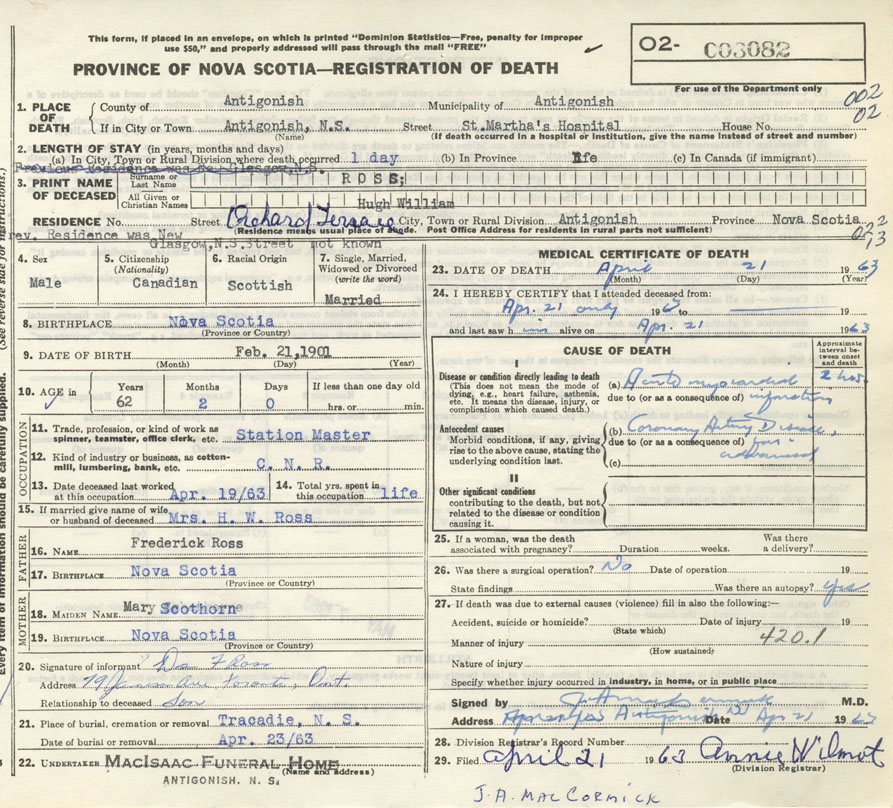 This form, if placed in an envelope, on which is printed "Dominion Statistics—Free, penalty for improper
use $50," and properly addressed will pass through the mail "FREE"
O2- 003082
PROVINCE OF NOVA SCOTIA—REGISTRATION OF DEATH
For use of the Department only
002
02
1. PLACE OF DEATH
County of Antigonish Municipality of Antigonish
If in City or Town Antigonish, N.S. Street St.Martha's Hospital House No.
(Name) (If death occurred in a hospital or institution, give the name instead of street and number)
2. LENGTH OF STAY (in years, months and days)
(a) In City, Town or Rural Division where death occurred 1 day (b) In Province life (c) In Canada (if immigrant)
Previous Residence was Glasgow, N.S.
3. PRINT NAME OF DECEASED
Surname or Last Name ROSS;
All Given or Christian Names Hugh William
RESIDENCE No. Street Orchard Terrace City, Town or Rural Division Antigonish Province Nova Scotia
(Residence means usual place of abode. Post Office Address for residents in rural parts not sufficient)
rev. Residence was New
Glasgow,N.S.Street not known
022
13
4. Sex
Male
5. Citizenship
(Nationality)
Canadian
6. Racial Origin
Scottish
7. Single, Married,
Widowed or Divorced
(write the word)
Married
8. BIRTHPLACE Nova Scotia
(Province or Country)
9. DATE OF BIRTH Feb. 21,1901
(Month) (Day) (Year)
10. AGE in
Years Months Days If less than one day old
62 2 0 hrs. or min.
OCCUPATION
11. Trade, profession, or kind of work as
spinner, teamster, office clerk, etc. Station Master
12. Kind of industry or business, as cotton-
mill, lumbering, bank, etc. C. N. R.
13. Date deceased last worked
at this occupation Apr. 19/63
14. Total yrs. spent in
this occupation life
15. If married give name of wife
or husband of deceased Mrs. H. W. Ross
FATHER
16. NAME Frederick Ross
17. BIRTHPLACE Nova Scotia
(Province or Country)
MOTHER
18. MAIDEN NAME Mary Scothorn
19. BIRTHPLACE Nova Scotia
(Province or Country)
20. Signature of informant F Ross
Address 79 Ave Toronto, Ont.
Relationship to deceased Son
21. Place of burial, cremation or removal Tracadie, N. S.
Date of burial or removal Apr. 23/63
22. UNDERTAKER MACISAAC FUNERAL HOME
(Name and address)
ANTIGONISH, N. S.
Every item of information should be carefully supplied. (See reverse side for instructions.)
MEDICAL CERTIFICATE OF DEATH
23. DATE OF DEATH April 21 1963
(Month) (Day) (Year)
24. I HEREBY CERTIFY that I attended deceased from:
Apr. 21 only 1963 to 19
and last saw him alive on Apr. 21 1963
CAUSE OF DEATH
Approximate
interval be-
tween onset
and death
I
Disease or condition directly leading to death
(This does not mean the mode of
dying, e.g., heart failure, asthenia,
etc. It means the disease, injury, or
complication which caused death.)
(a) Acute myocardial 2 hrs.
due to (or as a consequence of) infarction
Antecedent causes
Morbid conditions, if any, giving
rise to the above cause, stating the
underlying condition last.
(b) Coronary Artery Disease,
due to (or as a consequence of) far-
advanced
(c)
II
Other significant conditions
contributing to the death, but not
related to the disease or condition
causing it.
25. If a woman, was the death
associated with pregnancy? Duration weeks. Was there
a delivery?
26. Was there a surgical operation? No Date of operation 19
State findings Was there an autopsy? yes
27. If death was due to external causes (violence) fill in also the following:—
Accident, suicide or homicide? Date of injury 19
(State which)
Manner of injury 420.1
(How sustained)
Nature of injury
Specify whether injury occurred in industry, in home, or in public place
Signed by M.D.
Address Antigonish Date Apr 21 1963
28. Division Registrar's Record Number
29. Filed April 21 1963 Annie Wilmot
(Division Registrar)
J.A. MACCORMICK